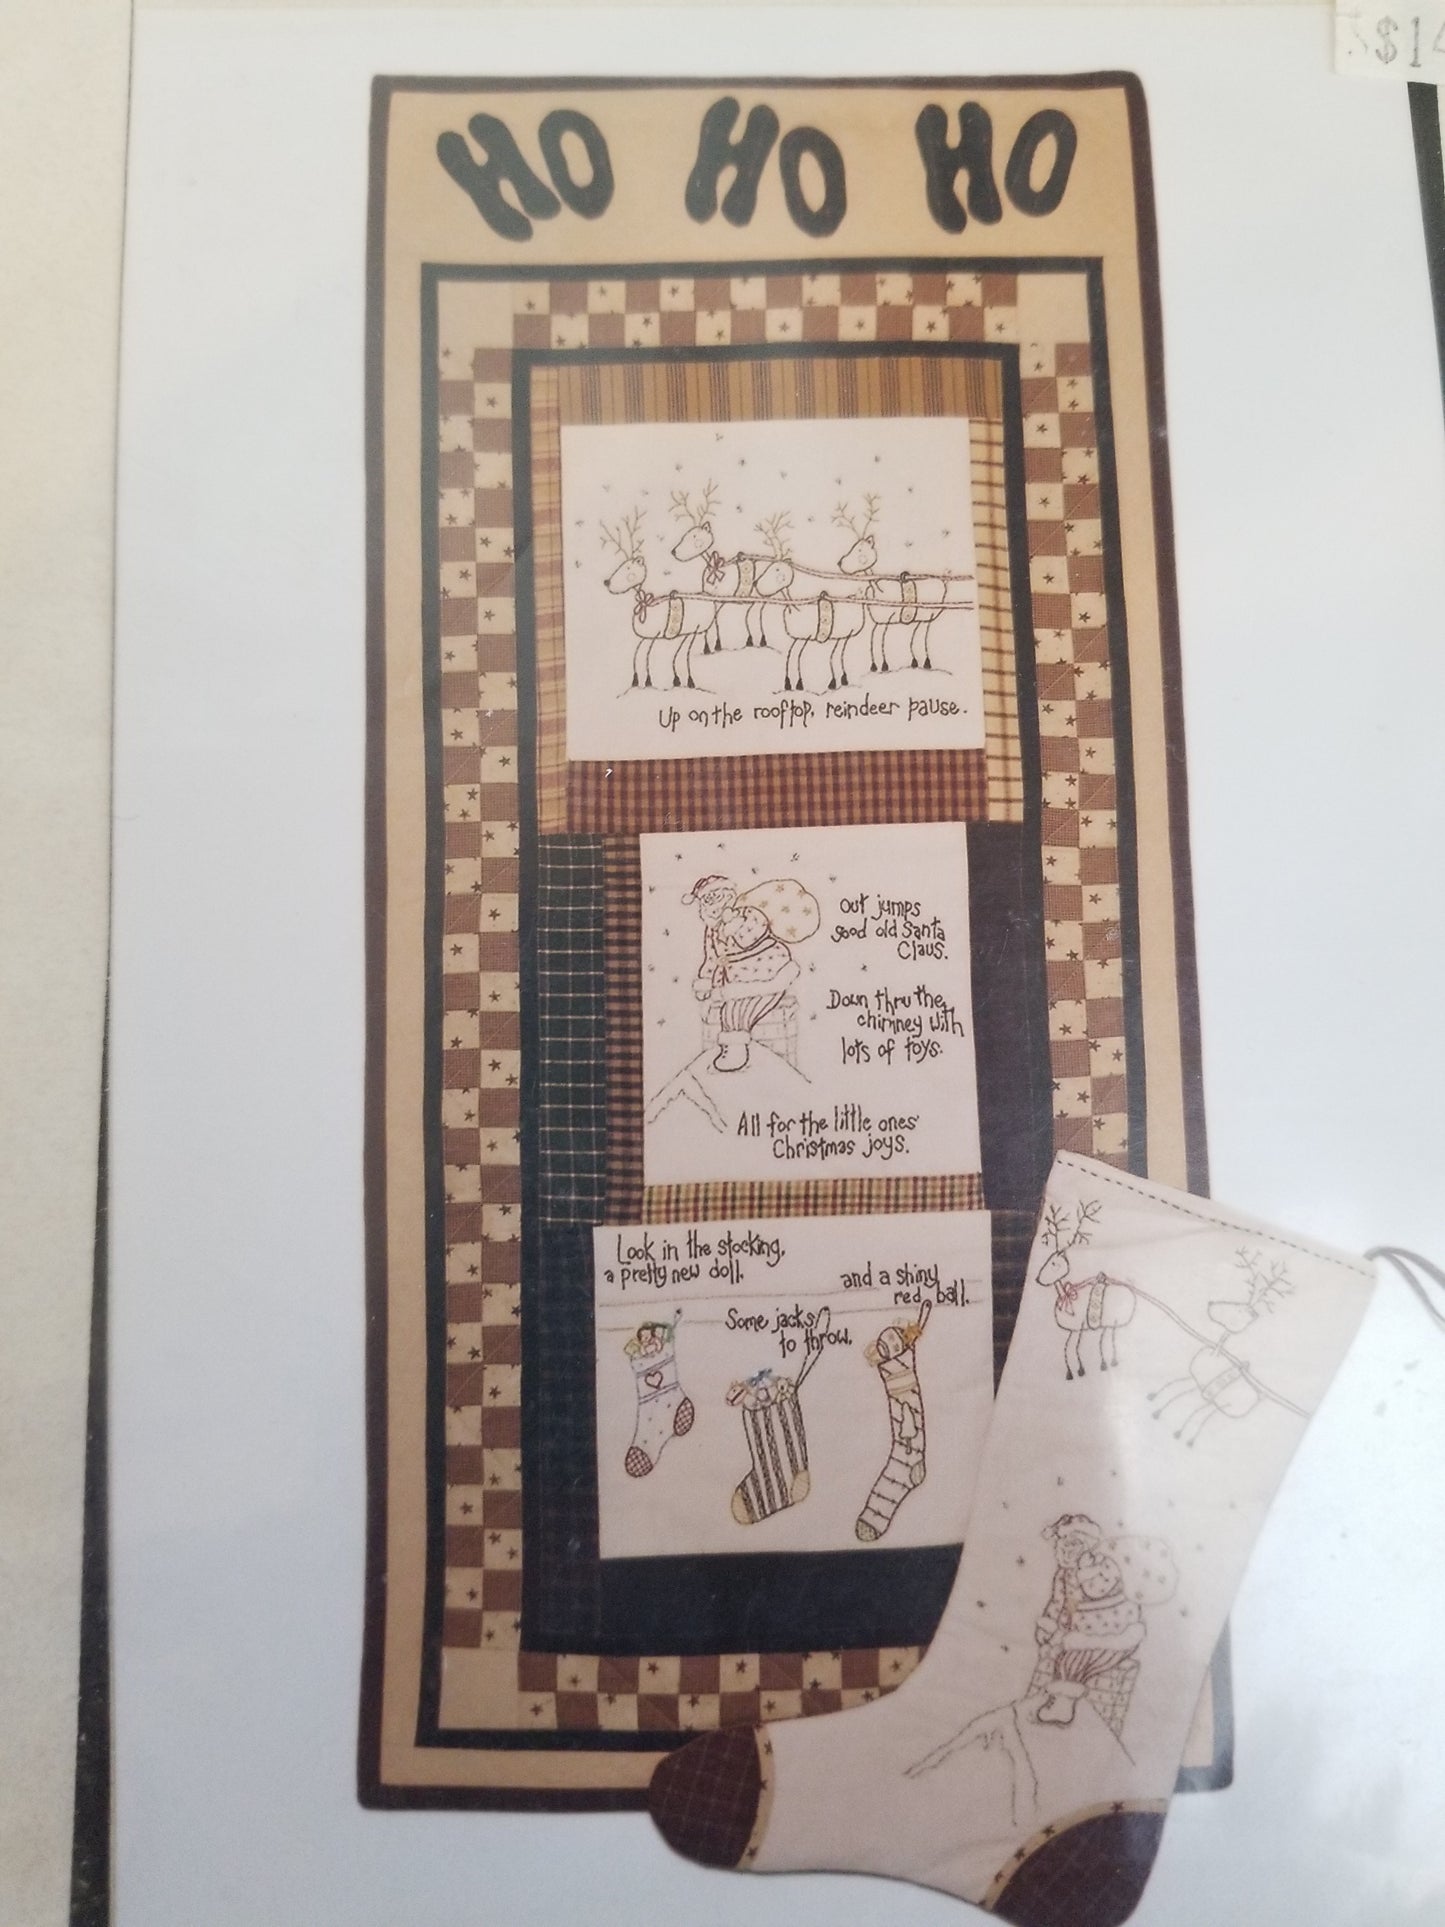 $14
HO HO HO
Up on the rooftop, reindeer pause.
Out jumps
good old Santa
Claus.
Down thru the
chimney with
lots of toys.
All for the little ones'
Christmas joys.
Look in the stocking,
a pretty new doll.
Some jacks
to throw,
and a shiny
red ball.